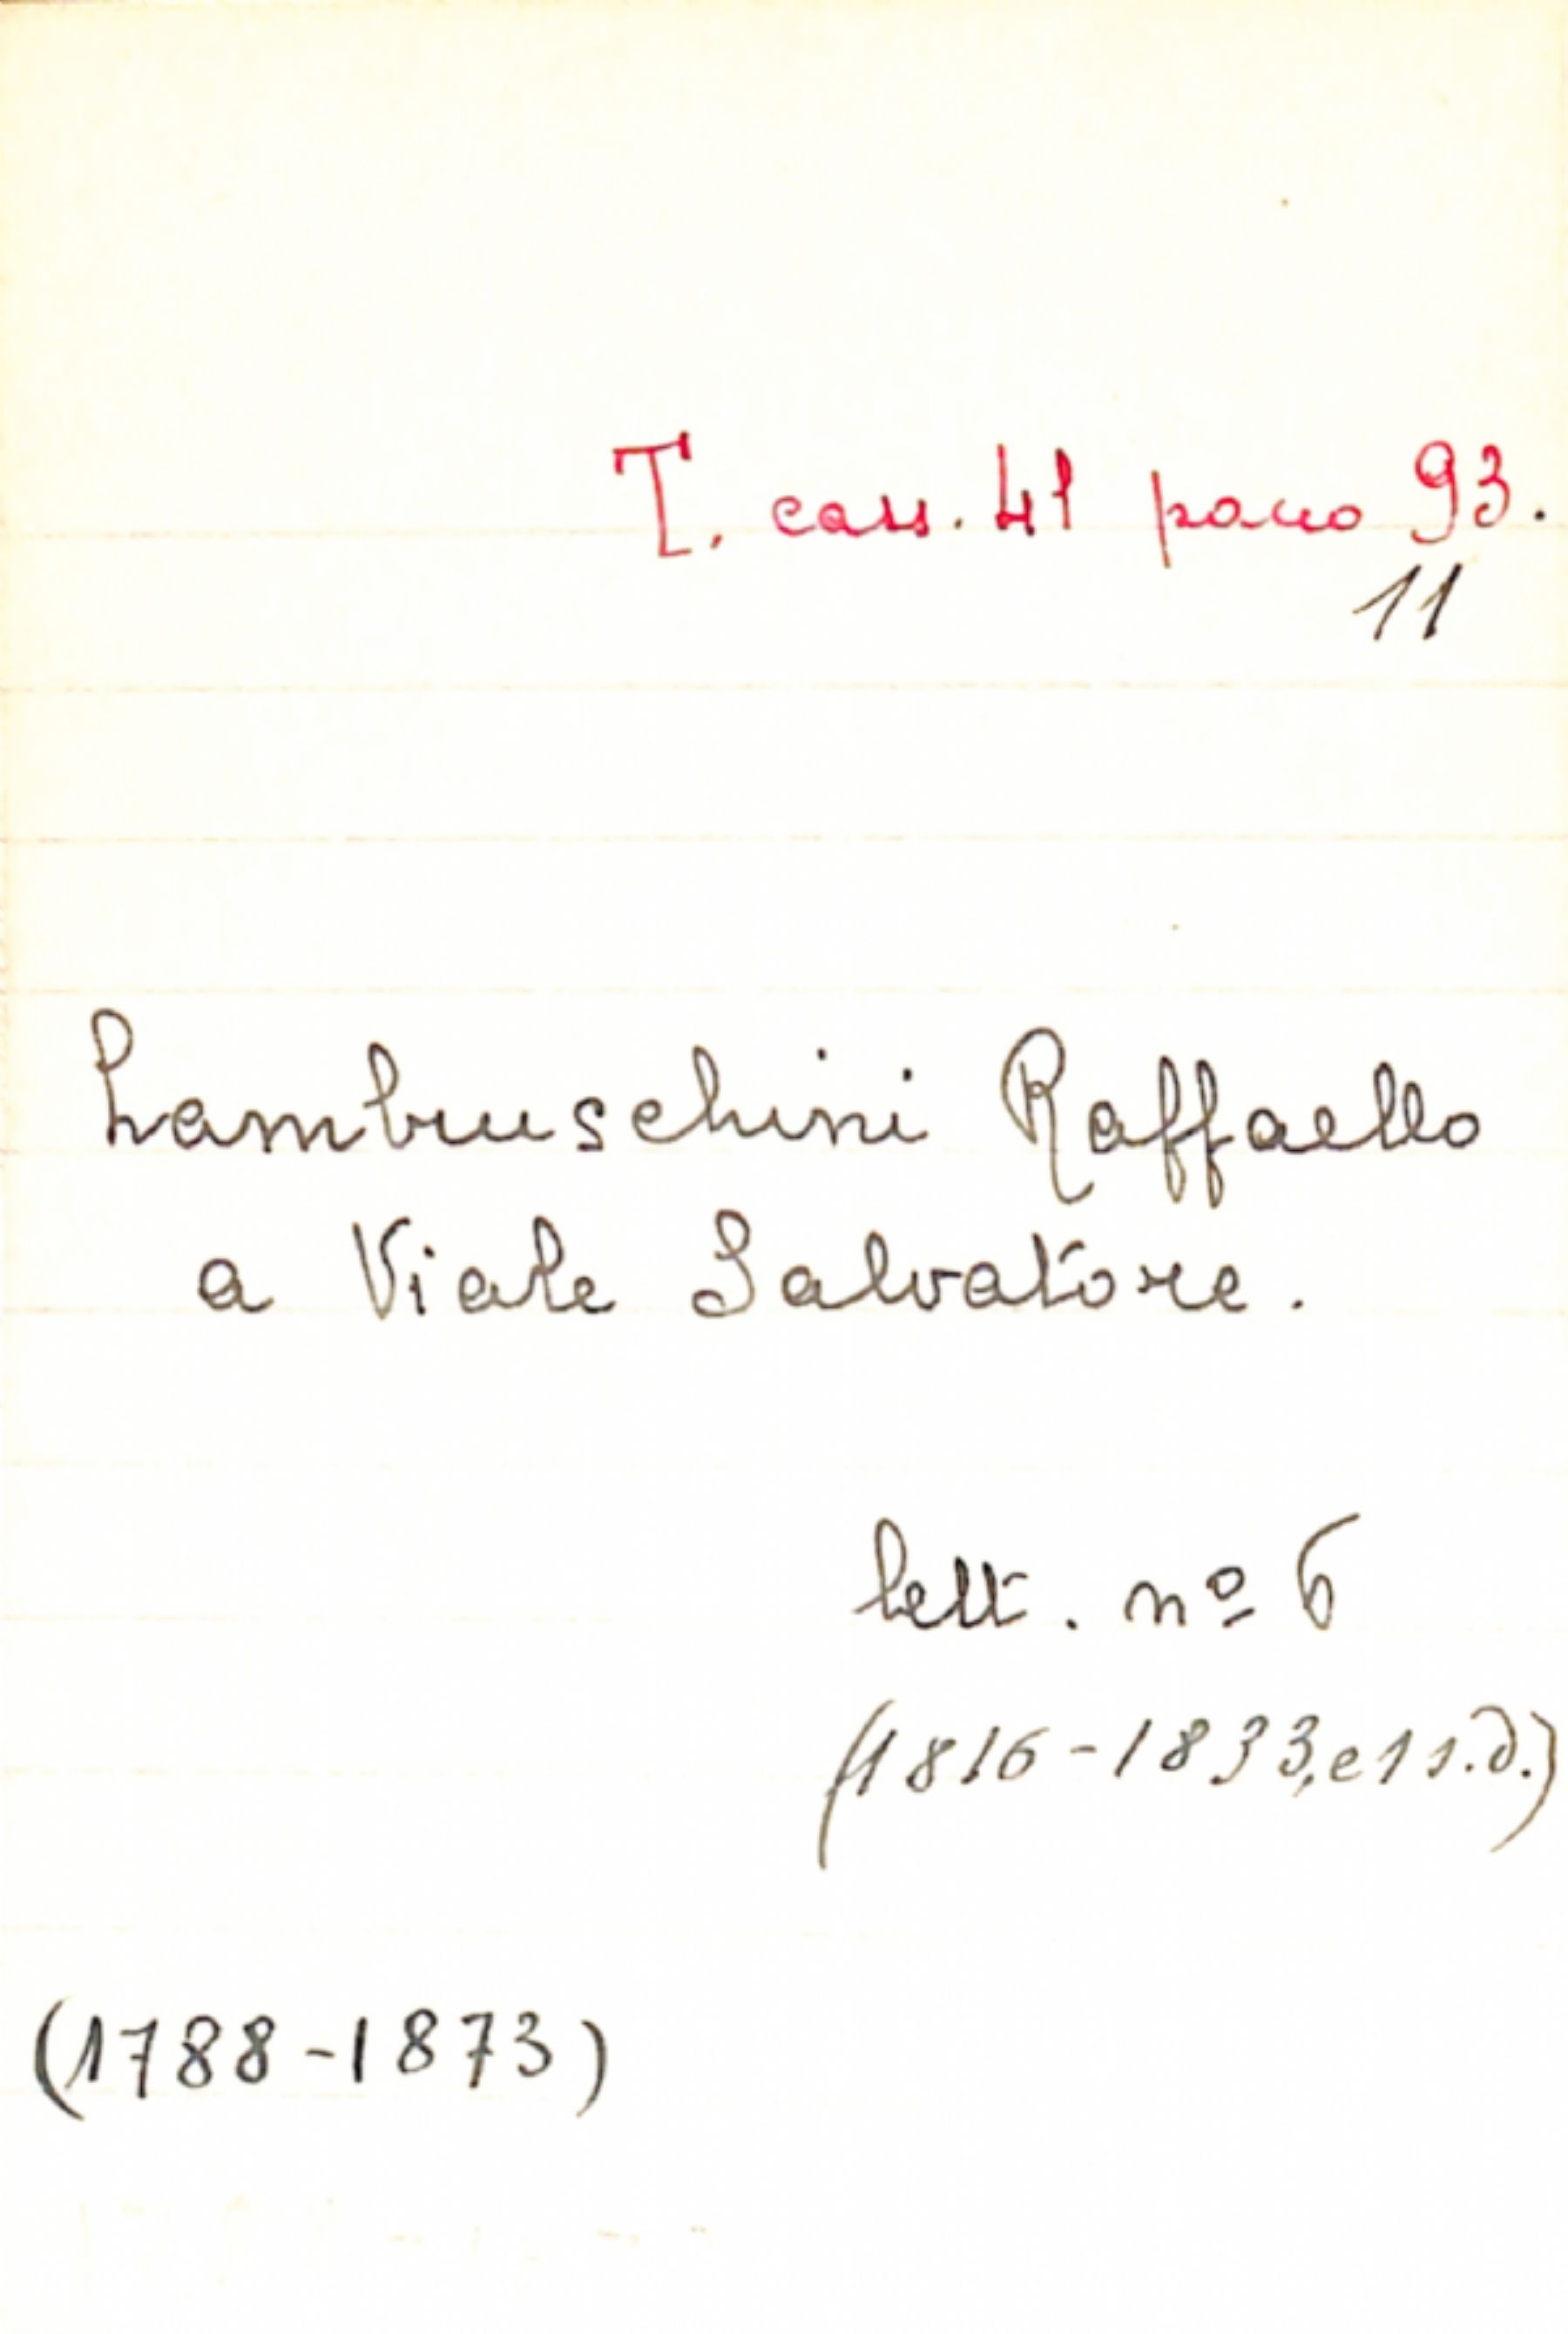 T. cass. 41 pacco 93.
11
Lambruschini Raffaello
a Viale Salvatore.
lett. nº 6
(1816-1833, e 1 s.d.)
(1788-1873)